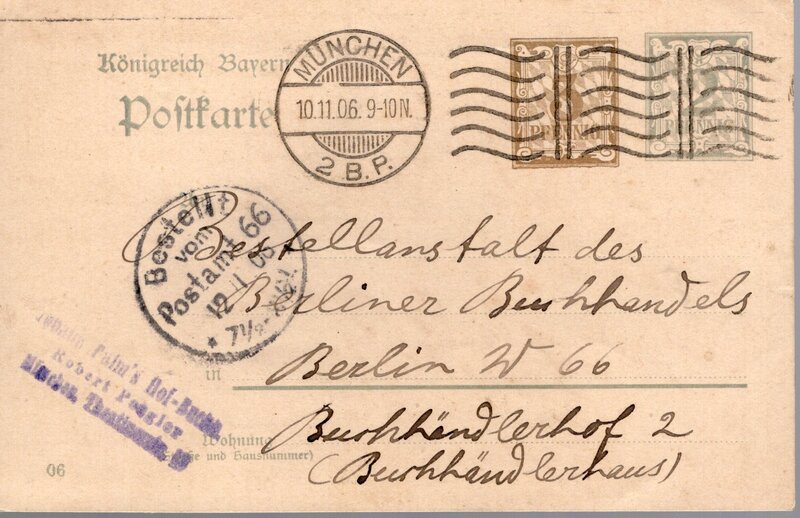 Königreich Bayern
Postkarte
MÜNCHEN
10.11.06. 9-10N.
2 B.P.
3
PFENNIG
PFENNIG
Bestellt
vom
Postamt 66
12 11 06
* 7½-
Bestellanstalt des
Berliner Buchhandels
Berlin W 66
in
Buchhändlerhof 2
(Buchhändlerhaus)
Wohnung
(Straße und Hausnummer)
Johann Palm's Hof-Buchh.
Robert
München,
06